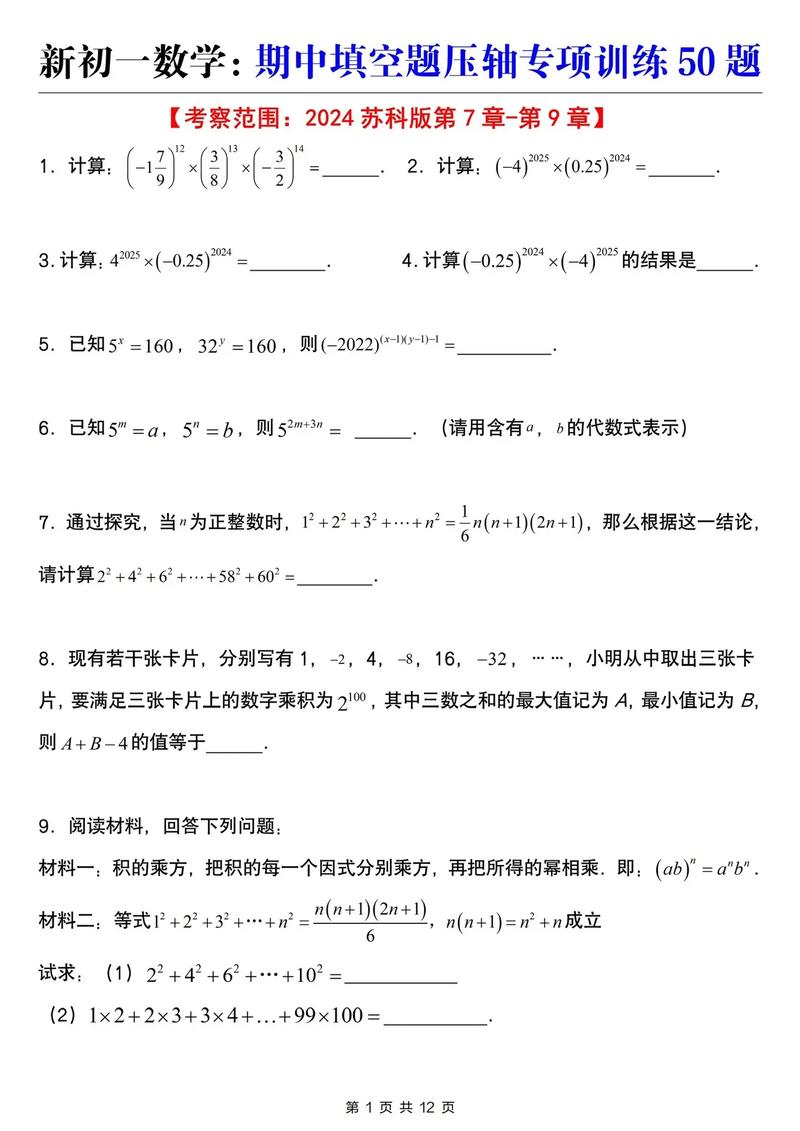 新初一数学：期中填空题压轴专项训练 50 题
【考察范围：2024 苏科版第 7 章-第 9 章】
1．计算：(−1 7/9)^12 ×(3/8)^13 ×(−3/2)^14 = ______． 2．计算：(−4)^2025 ×(0.25)^2024 = _______．
3.计算：4^2025 ×(−0.25)^2024 = ________． 4.计算(−0.25)^2024 ×(−4)^2025 的结果是______．
5．已知 5^x =160，32^y =160，则(−2022)^((x−1)(y−1)−1) = __________．
6．已知 5^m = a，5^n = b，则 5^(2m+3n) = ______．（请用含有 a，b 的代数式表示）
7．通过探究，当 n 为正整数时，1²+2²+3²+⋯+n² = 1/6 n(n+1)(2n+1)，那么根据这一结论，
请计算 2²+4²+6²+⋯+58²+60² = ________．
8．现有若干张卡片，分别写有 1，−2，4，−8，16，−32，……，小明从中取出三张卡
片，要满足三张卡片上的数字乘积为 2^100，其中三数之和的最大值记为 A，最小值记为 B，
则 A+B−4 的值等于______．
9．阅读材料，回答下列问题：
材料一：积的乘方，把积的每一个因式分别乘方，再把所得的幂相乘．即：(ab)^n = a^n b^n．
材料二：等式 1²+2²+3²+⋯+n² = n(n+1)(2n+1)/6，n(n+1)=n²+n 成立
试求：（1）2²+4²+6²+⋯+10² = ____________
（2）1×2+2×3+3×4+…+99×100 = ___________．
第 1 页 共 12 页